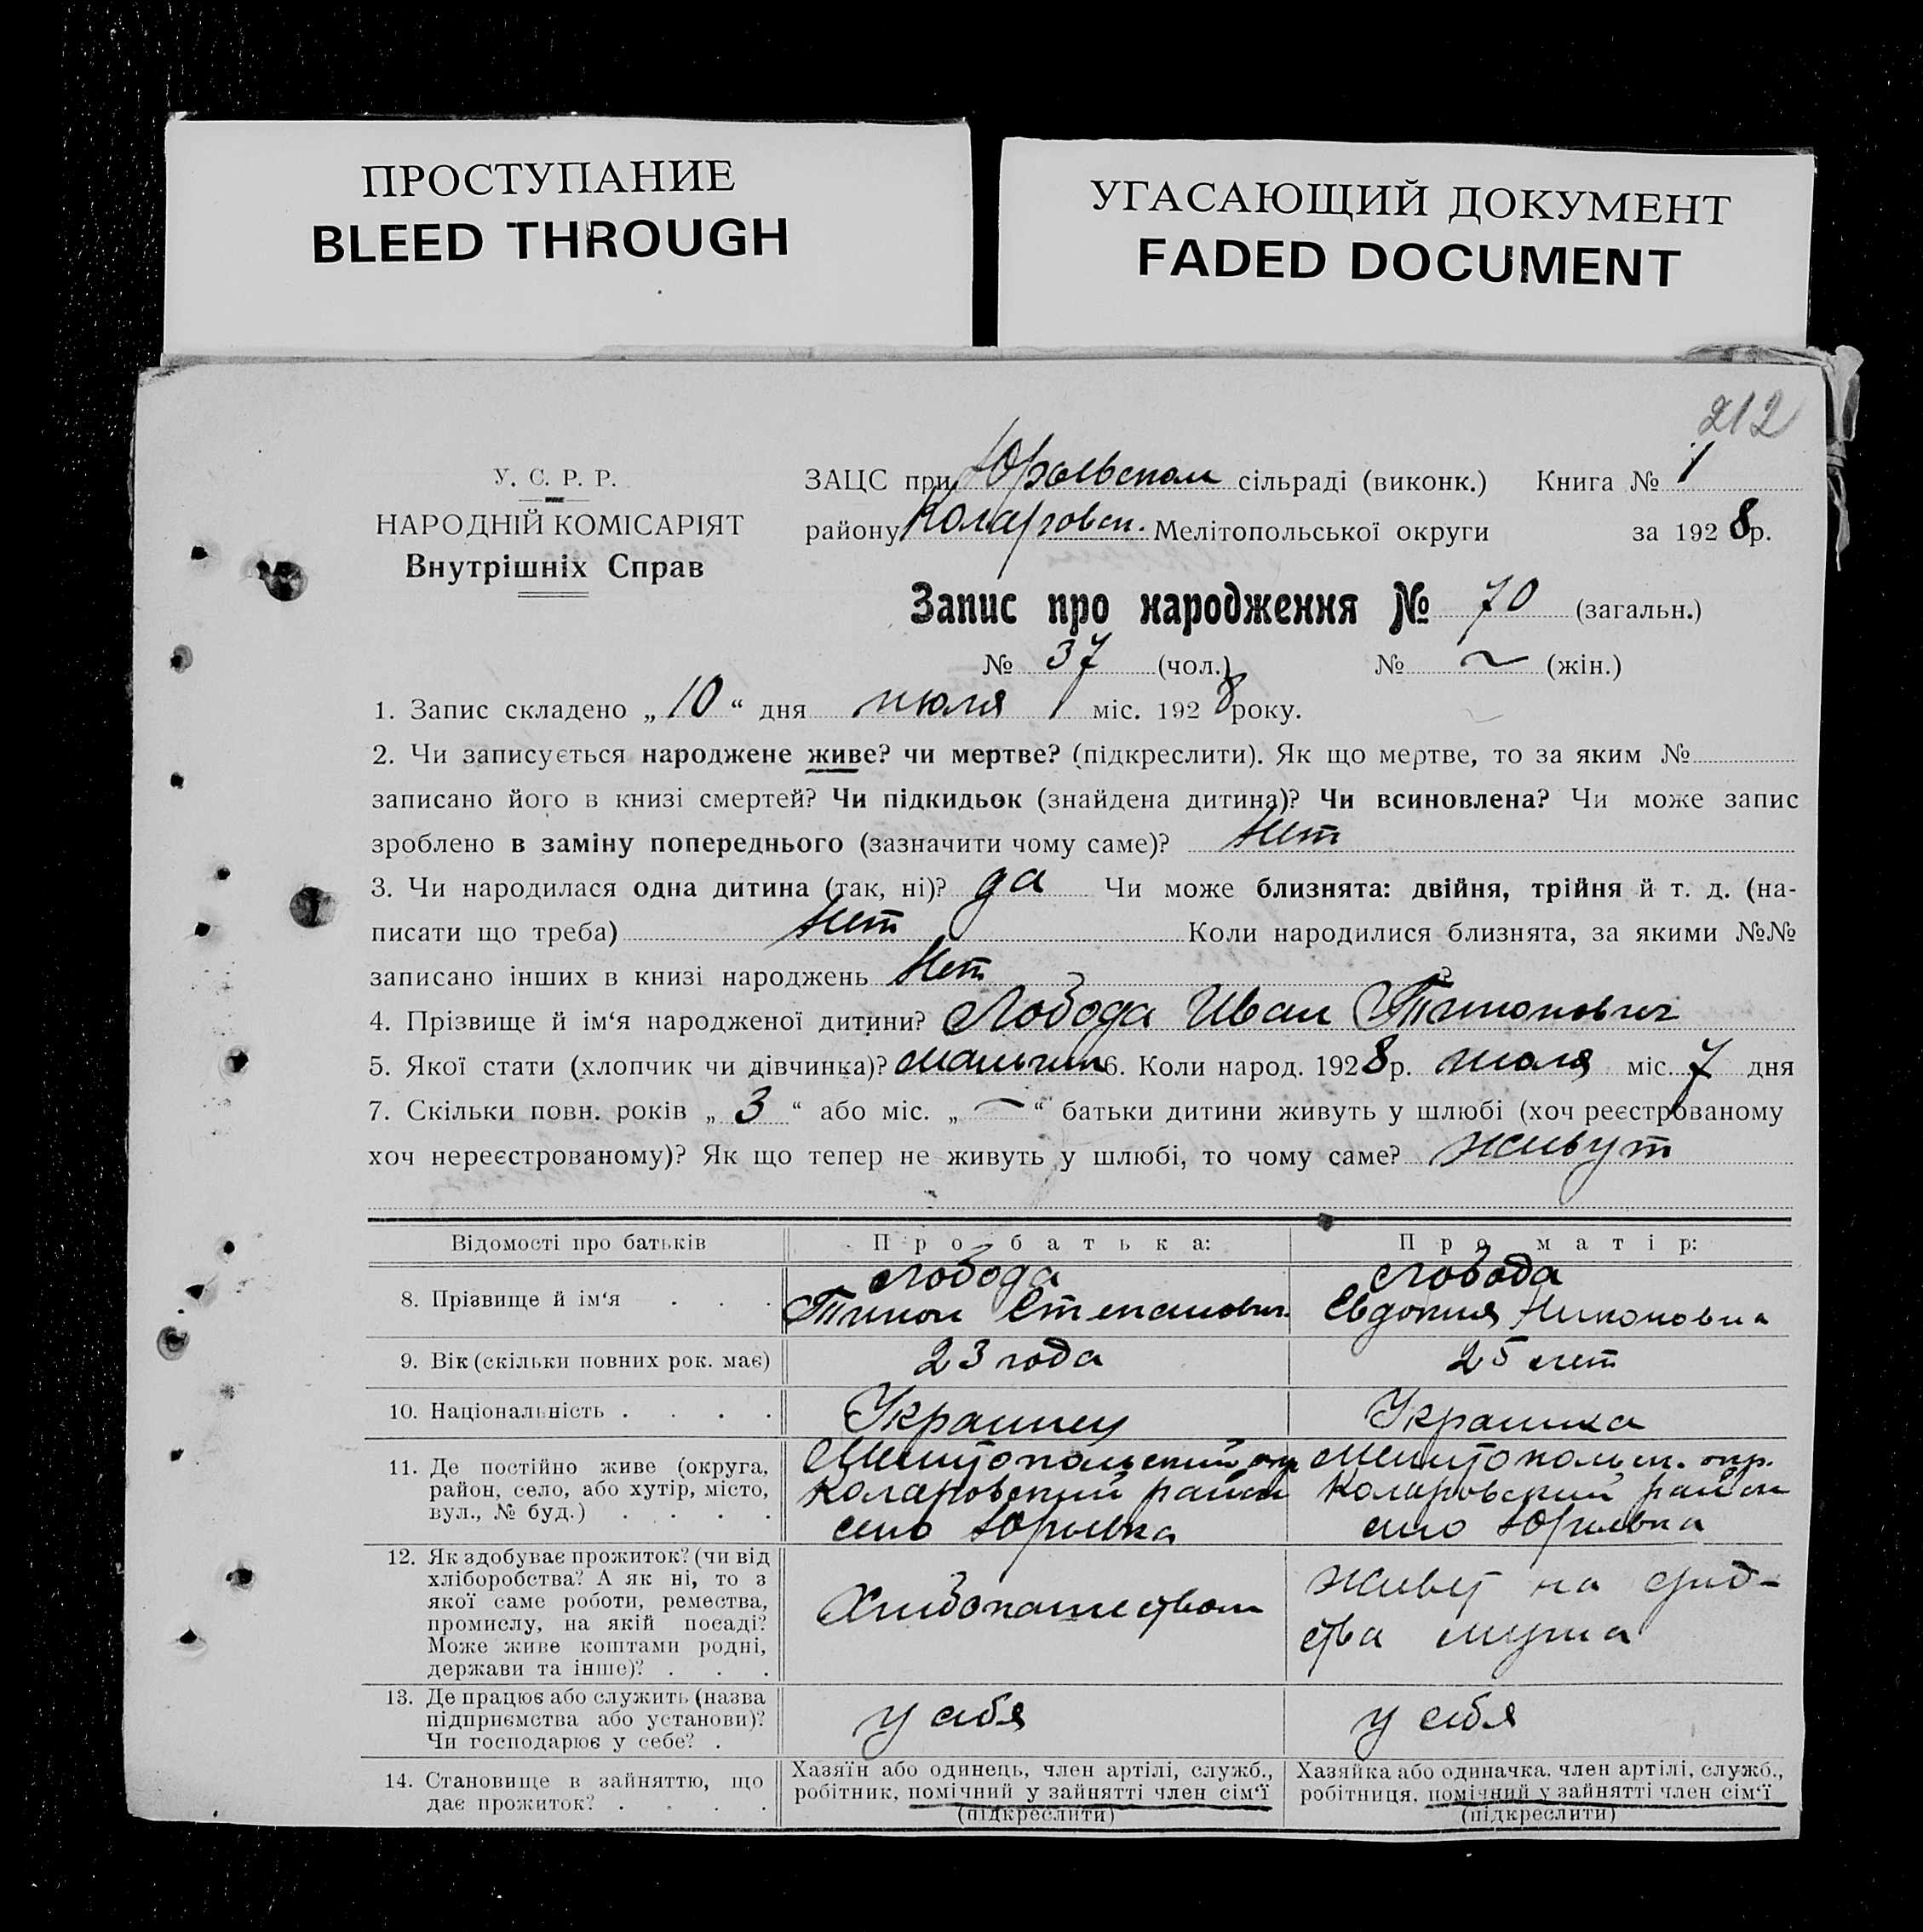 ПРОСТУПАНИЕ
BLEED THROUGH
УГАСАЮЩИЙ ДОКУМЕНТ
FADED DOCUMENT
212
У. С. Р. Р.
НАРОДНІЙ КОМІСАРІЯТ
Внутрішніх Справ
ЗАЦС при Юрьевском сільраді (виконк.) Книга № 1
району Коларовск. Мелітопольської округи за 1928 р.
Запис про народження № 70 (загальн.)
№ 37 (чол.) № ~ (жін.)
1. Запис складено „10“ дня июля міс. 1928 року.
2. Чи записується народжене живе? чи мертве? (підкреслити). Як що мертве, то за яким №
записано його в книзі смертей? Чи підкидьок (знайдена дитина)? Чи всиновлена? Чи може запис
зроблено в заміну попереднього (зазначити чому саме)? Нет
3. Чи народилася одна дитина (так, ні)? да Чи може близнята: двійня, трійня й т. д. (на-
писати що треба) Нет Коли народилися близнята, за якими №№
записано інших в книзі народжень Нет ?
4. Прізвище й ім‘я народженої дитини? Лобода Иван Тихонович
5. Якої стати (хлопчик чи дівчинка)? мальчик 6. Коли народ. 1928 р. июля міс. 7 дня
7. Скільки повн. років „3“ або міс. „—“ батьки дитини живуть у шлюбі (хоч реєстрованому
хоч нереєстрованому)? Як що тепер не живуть у шлюбі, то чому саме? живут
Відомості про батьків
Про батька:
Про матір:
8. Прізвище й ім‘я . . .
Лобода
Тихон Степанович
Лобода
Евдокия Никоновна
9. Вік (скільки повних рок. має)
23 года
25 лет
10. Національність . . . .
Украинец
Украинка
11. Де постійно живе (округа,
район, село, або хутір, місто,
вул., № буд.) . . . .
Мелитопольский окр
Коларовский район
село Юрьевка
Мелитопольск. окр.
Коларовский район
село Юрьевка
12. Як здобуває прожиток? (чи від
хліборобства? А як ні, то з
якої саме роботи, ремества,
промислу, на якій посаді?
Може живе коштами родні,
держави та інше)? . . .
Хлебопашеством
живет на сред-
ства мужа
13. Де працює або служить (назва
підприємства або установи)?
Чи господарює у себе? .
у себя
у себя
14. Становище в зайняттю, що
дає прожиток? . . . .
Хазяїн або одинець, член артілі, служб.,
робітник, помічний у зайнятті член сім‘ї
(підкреслити)
Хазяйка або одиначка, член артілі, служб.,
робітниця, помічний у зайнятті член сім‘ї
(підкреслити)